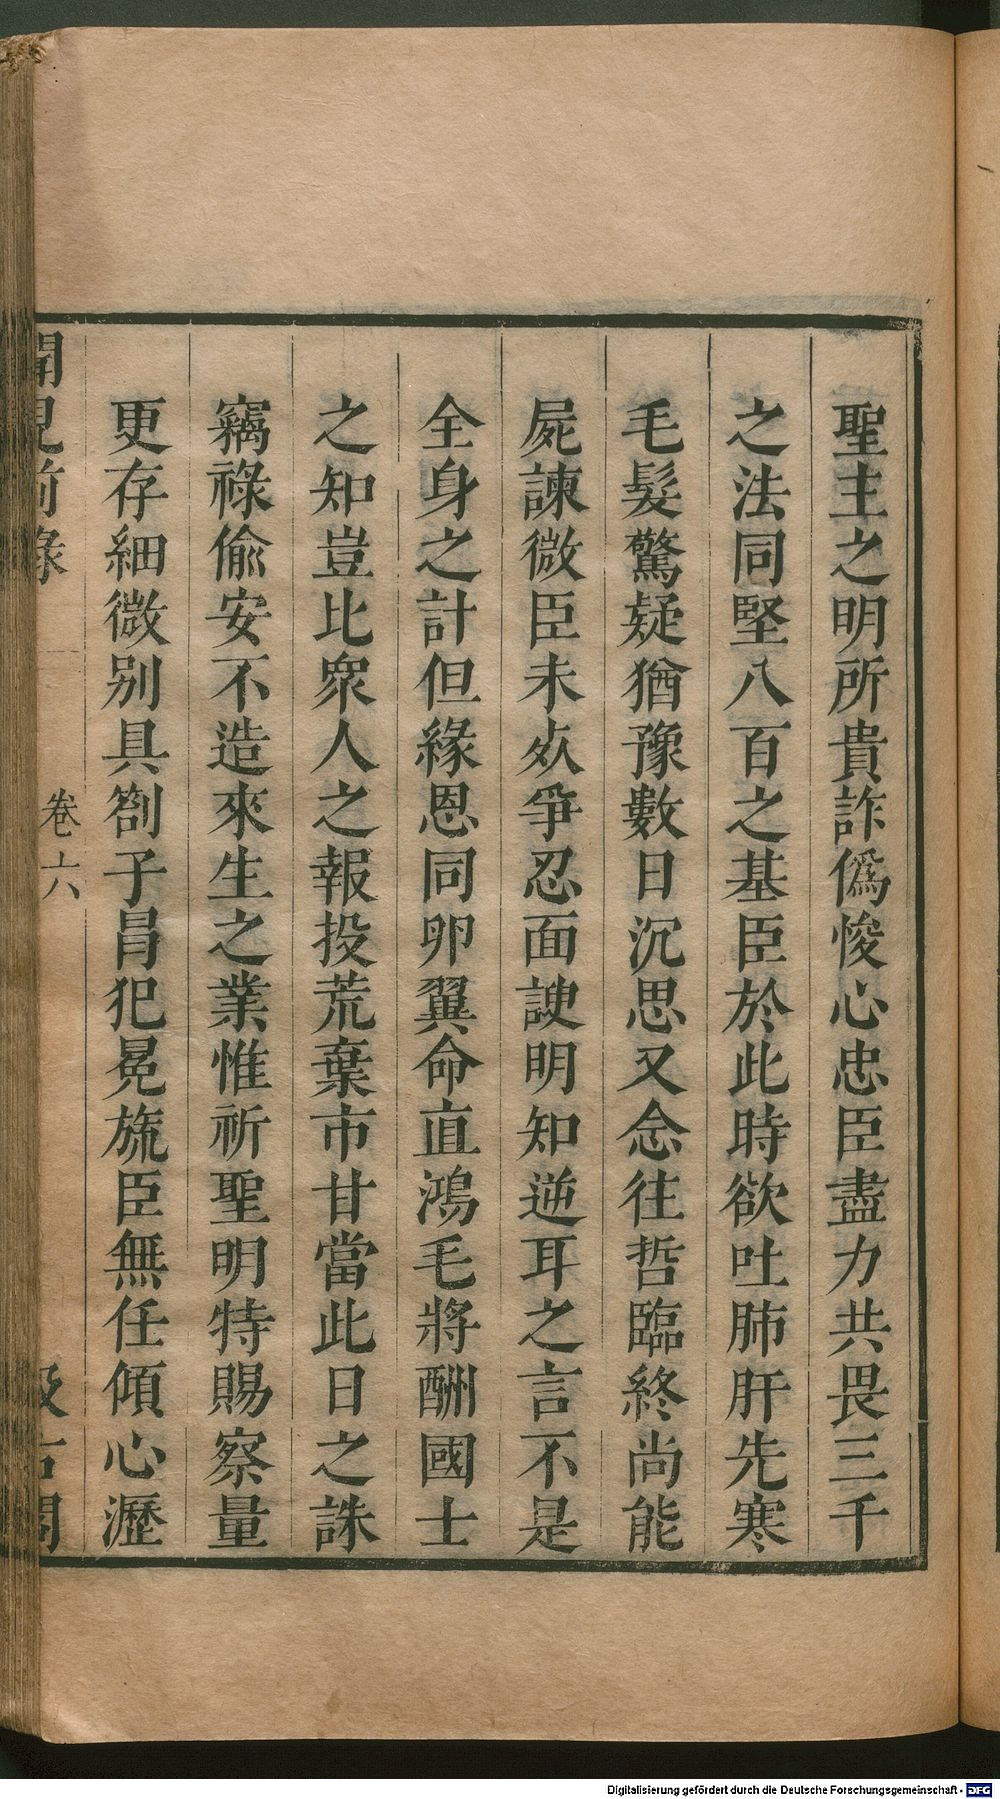 聖主之明所貴詐僞悛心忠臣盡力共畏三千
之法同堅八百之基臣於此時欲吐肺肝先寒
毛髮驚疑猶豫數日沉思又念往哲臨終尚能
屍諫微臣未死爭忍面諛明知逆耳之言不是
全身之計但緣恩同卵翼命直鴻毛將酬國士
之知豈比衆人之報投荒棄市甘當此日之誅
竊祿偷安不造來生之業惟祈聖明特賜察量
更存細微别具劄子冐犯冕旒臣無任傾心瀝
聞見前錄
卷六
汲古閣
Digitalisierung gefördert durch die Deutsche Forschungsgemeinschaft - DFG